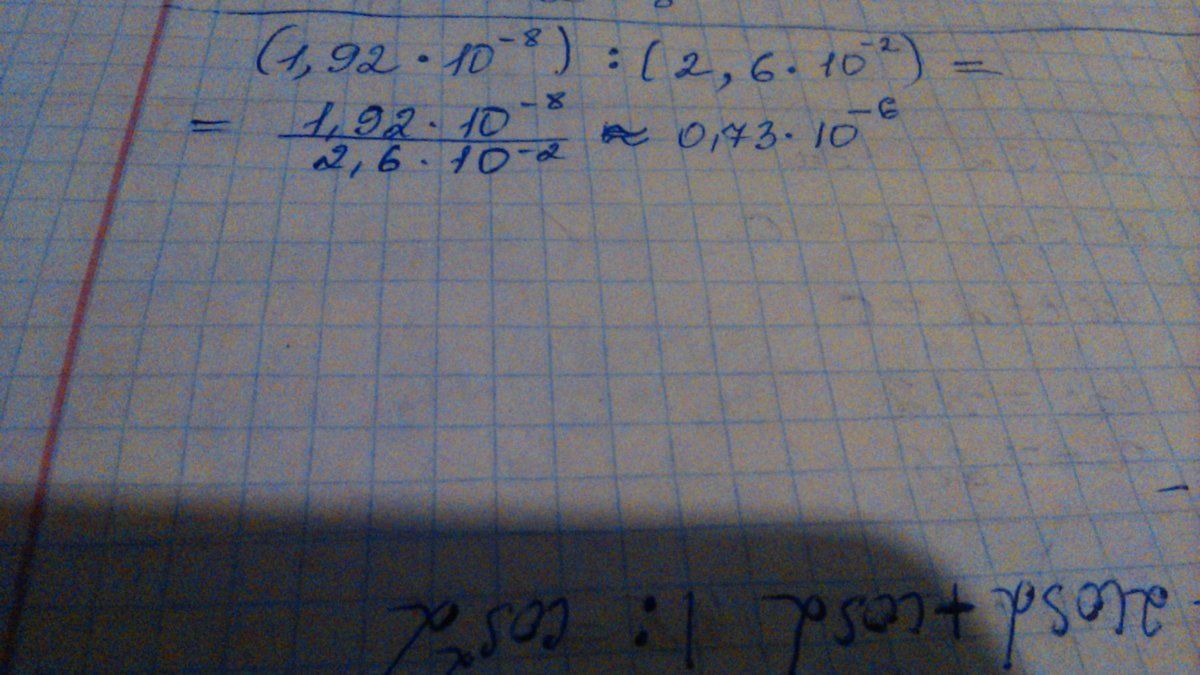 (1,92 · 10⁻⁸) : (2,6 · 10⁻²) =
= 1,92 · 10⁻⁸ / 2,6 · 10⁻² ≈ 0,73 · 10⁻⁶
2cosα + cosα | : cos²α